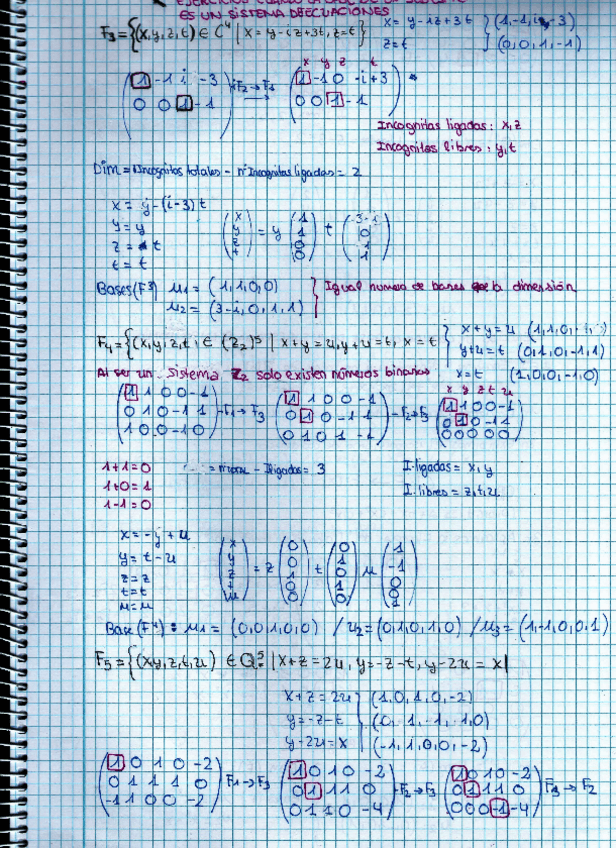 ES UN SISTEMA DE ECUACIONES
F₃ = {(x,y,z,t) ∈ C⁴ | x = y-iz+3t, z=t}
x = y-iz+3t } (1,-1,i,-3)
z=t } (0,0,1,-1)
x y z t
(1 -1 i -3) F₂→F₁ (1 -1 0 -i+3)
(0 0 1 -1) → (0 0 1 -1)
Incognitas ligadas: x,z
Incognitas libres: y,t
Dim = nºIncognitas totales - nº Incognitas ligadas = 2
x = y-(i-3)t
y = y
z = t
t = t
(x y z t) = y (1 1 0 0) t (-3-i 0 1 1)
Bases(F³) μ₁ = (1,1,0,0)
μ₂ = (3-i,0,1,1)
Igual numero de bases que la dimensión
F₄ = {(x,y,z,t, ∈ (Z₂)⁵ | x+y=u, y+u=t, x=t}
x+y=u (1,1,0,
y+u=t (0,1,0,-1,1)
x=t (1,0,0,-1,0)
Al ser un sistema Z₂ solo existen números binarios
x y z t u
(1 1 0 0 -1) (1 1 0 0 -1) (1 1 0 0 -1)
(0 1 0 -1 1) -F₁→F₃ (0 1 0 -1 1) -F₂→F₃ (0 1 0 -1 1)
(1 0 0 -1 0) (0 1 0 1 -1) (0 0 0 0 0)
1+1=0
1+0=1
1-1=0
ligadas = 3
I.ligadas = x,y
I.libres = z,t,u
x = -y+u
y = t-u
z = z
t = t
u = u
(x y z t u) = z (0 0 1 0 0) t (0 1 0 1 0) u (1 -1 0 0 1)
Base(F⁴): μ₁ = (0,0,1,0,0) / μ₂ = (0,1,0,1,0) / μ₃ = (1,-1,0,0,1)
F₅ = {(x,y,z,t,u) ∈ Q⁵ | x+z=2u, y=-z-t, y-2u=x|
x+z=2u (1,0,1,0,-2)
y=-z-t (0,1,-1,-1,0)
y-2u=x (-1,1,0,0,-2)
(1 0 1 0 -2) (1 0 1 0 -2) (1 0 1 0 -2)
(0 1 1 1 0) F₁→F₃ (0 1 1 1 0) -F₂→F₃ (0 1 1 1 0) F₃→F₂
(-1 1 0 0 -2) (0 1 1 0 -4) (0 0 0 -1 -4)